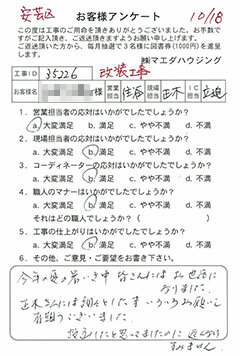 安芸区
お客様アンケート
10/18
この度は工事のご用命を頂きありがとうございました。お手数
ですがご記入頂き、ご返送頂きますようお願い申し上げます。
ご返送頂いた方から、毎月抽選で3名様に図書券(1000円)を進呈
します。
㈱マエダハウジング
工事ID 35226 改装工事
お客様名 様 営業担当 住谷 現場担当 正木 IC担当
1. 営業担当者の応対はいかがでしたでしょうか?
a. 大変満足 b. 満足 c. やや不満 d. 不満
2. 現場担当者の応対はいかがでしたでしょうか?
a. 大変満足 b. 満足 c. やや不満 d. 不満
3. コーディネーターの応対はいかがでしたでしょうか?
a. 大変満足 b. 満足 c. やや不満 d. 不満
4. 職人のマナーはいかがでしたでしょうか?
a. 大変満足 b. 満足 c. やや不満 d. 不満
それはどの職人でしょうか? ( )
5. 工事の仕上がりはいかがでしたでしょうか?
a. 大変満足 b. 満足 c. やや不満 d. 不満
6. その他、ご意見・ご要望をお書き下さい。
今年の夏の暑い中 皆さんには お世話に
なりました。
正木さんには いろいろお願いし
有難うございました。
すみません